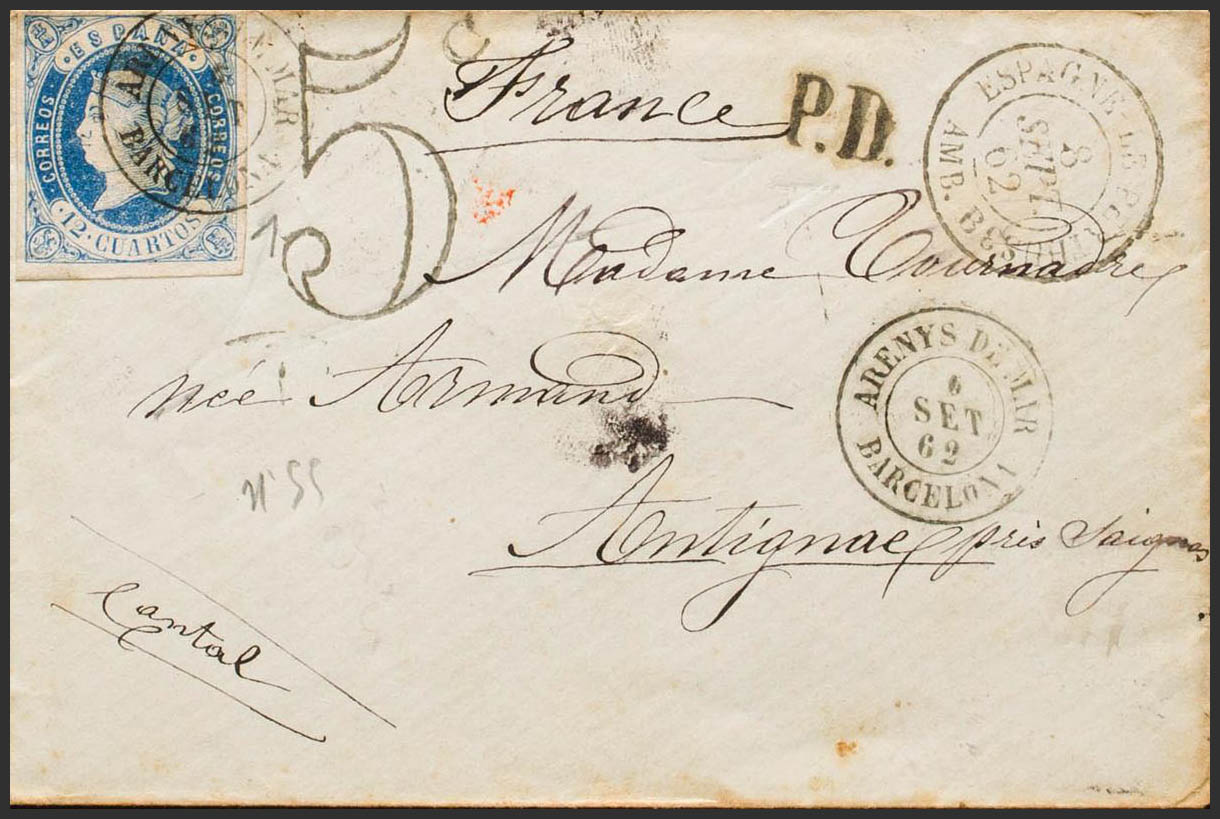 ESPAÑA
CORREOS
CORREOS
12 · CUARTOS
BARCELONA
5
France
P.D.
ESPAGNE
8
SEPT.
62
AMB.
Madame Tournadre
née Armand
ARENYS DE MAR
6
SET
62
BARCELONA
N° 55
Antignac près Saignes
Cantal